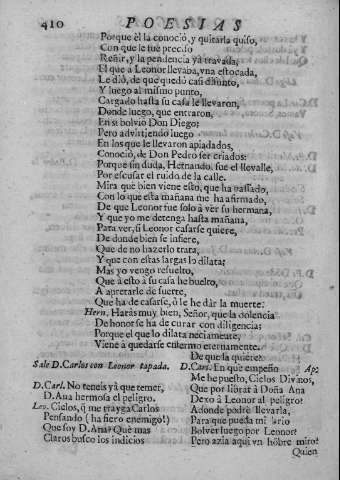 410 POESIAS
Porque èl la conociò, y quitarla quiso,
Con que le fuè preciso
Reñir, y la pendencia yà travada,
El que a Leonor llevaba, vna estocada,
Le diò, de que quedò casi difunto,
Y luego al mismo punto,
Cargado hasta su casa le llevaron,
Donde luego, que entraron,
En sì bolviò Don Diego;
Pero advirtiendo luego
En los que le llevaron apiadados,
Conociò, de Don Pedro ser criados:
Porque sin duda, Hernando, fue el llevalle,
Por escusar el ruido de la calle.
Mira què bien viene esto, que ha passado,
Con lo que esta mañana me ha afirmado,
De que Leonor fue solo à ver su hermana,
Y que yo me detenga hasta mañana,
Para ver, si Leonor casarse quiere,
De donde bien se infiere,
Que de no hazerlo trata,
Y que con estas largas lo dilata;
Mas yo vengo resuelto,
Que à esto à su casa he buelto,
A apretarle de suerte,
Que ha de casarse, ò le he dàr la muerte.
Hern. Haràs muy bien, Señor, que la dolencia
De honor se ha de curar con diligencia;
Porque el que lo dilata neciamente,
Viene à quedarse enfermo eternamente.
Sale D. Carlos con Leonor tapada.
D. Carl. No teneis yà que temer,
D. Ana hermosa el peligro.
Leo. Cielos, q̃ me trayga Carlos
Pensando (ha fiero enemigo!)
Que soy D. Ana? Què mas
Claros busco los indicios
De que la quiere?
D. Carl. En què empeño Ap:
Me he puesto, Cielos Divinos,
Que por librar à Doña Ana
Dexo à Leonor al peligro?
Adonde podrè llevarla,
Para que pueda mi
Bolver luego por Leonor?
Pero azia aqui vn hõbre miro?
Quien